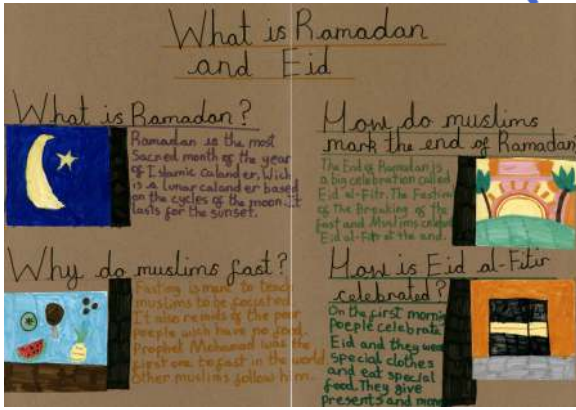 What is Ramadan
and Eid
What is Ramadan?
Ramadan is the most
Sacred month of the year
of Islamic calander. Wich
is a lunar calander based
on the cycles of the moon. It
lasts for the sunset.
Why do muslims fast?
Fasting is ment to teach
muslims to be focused.
It also reminds of the poor
people wich have no food.
Prophet Mohamad was the
first one to fast in the world
other muslims follow him.
How do muslims
mark the end of Ramadan
The End of Ramadan is
a big celebration called
Eid al-Fitr. The Festival
of the Breaking of the
fast and Muslims celebrate
Eid al-Fitr at the end.
How is Eid al-Fitir
celebrated?
On the first morning
People celebrate
Eid and they wear
special clothes
and eat special
food. They give
presents and money